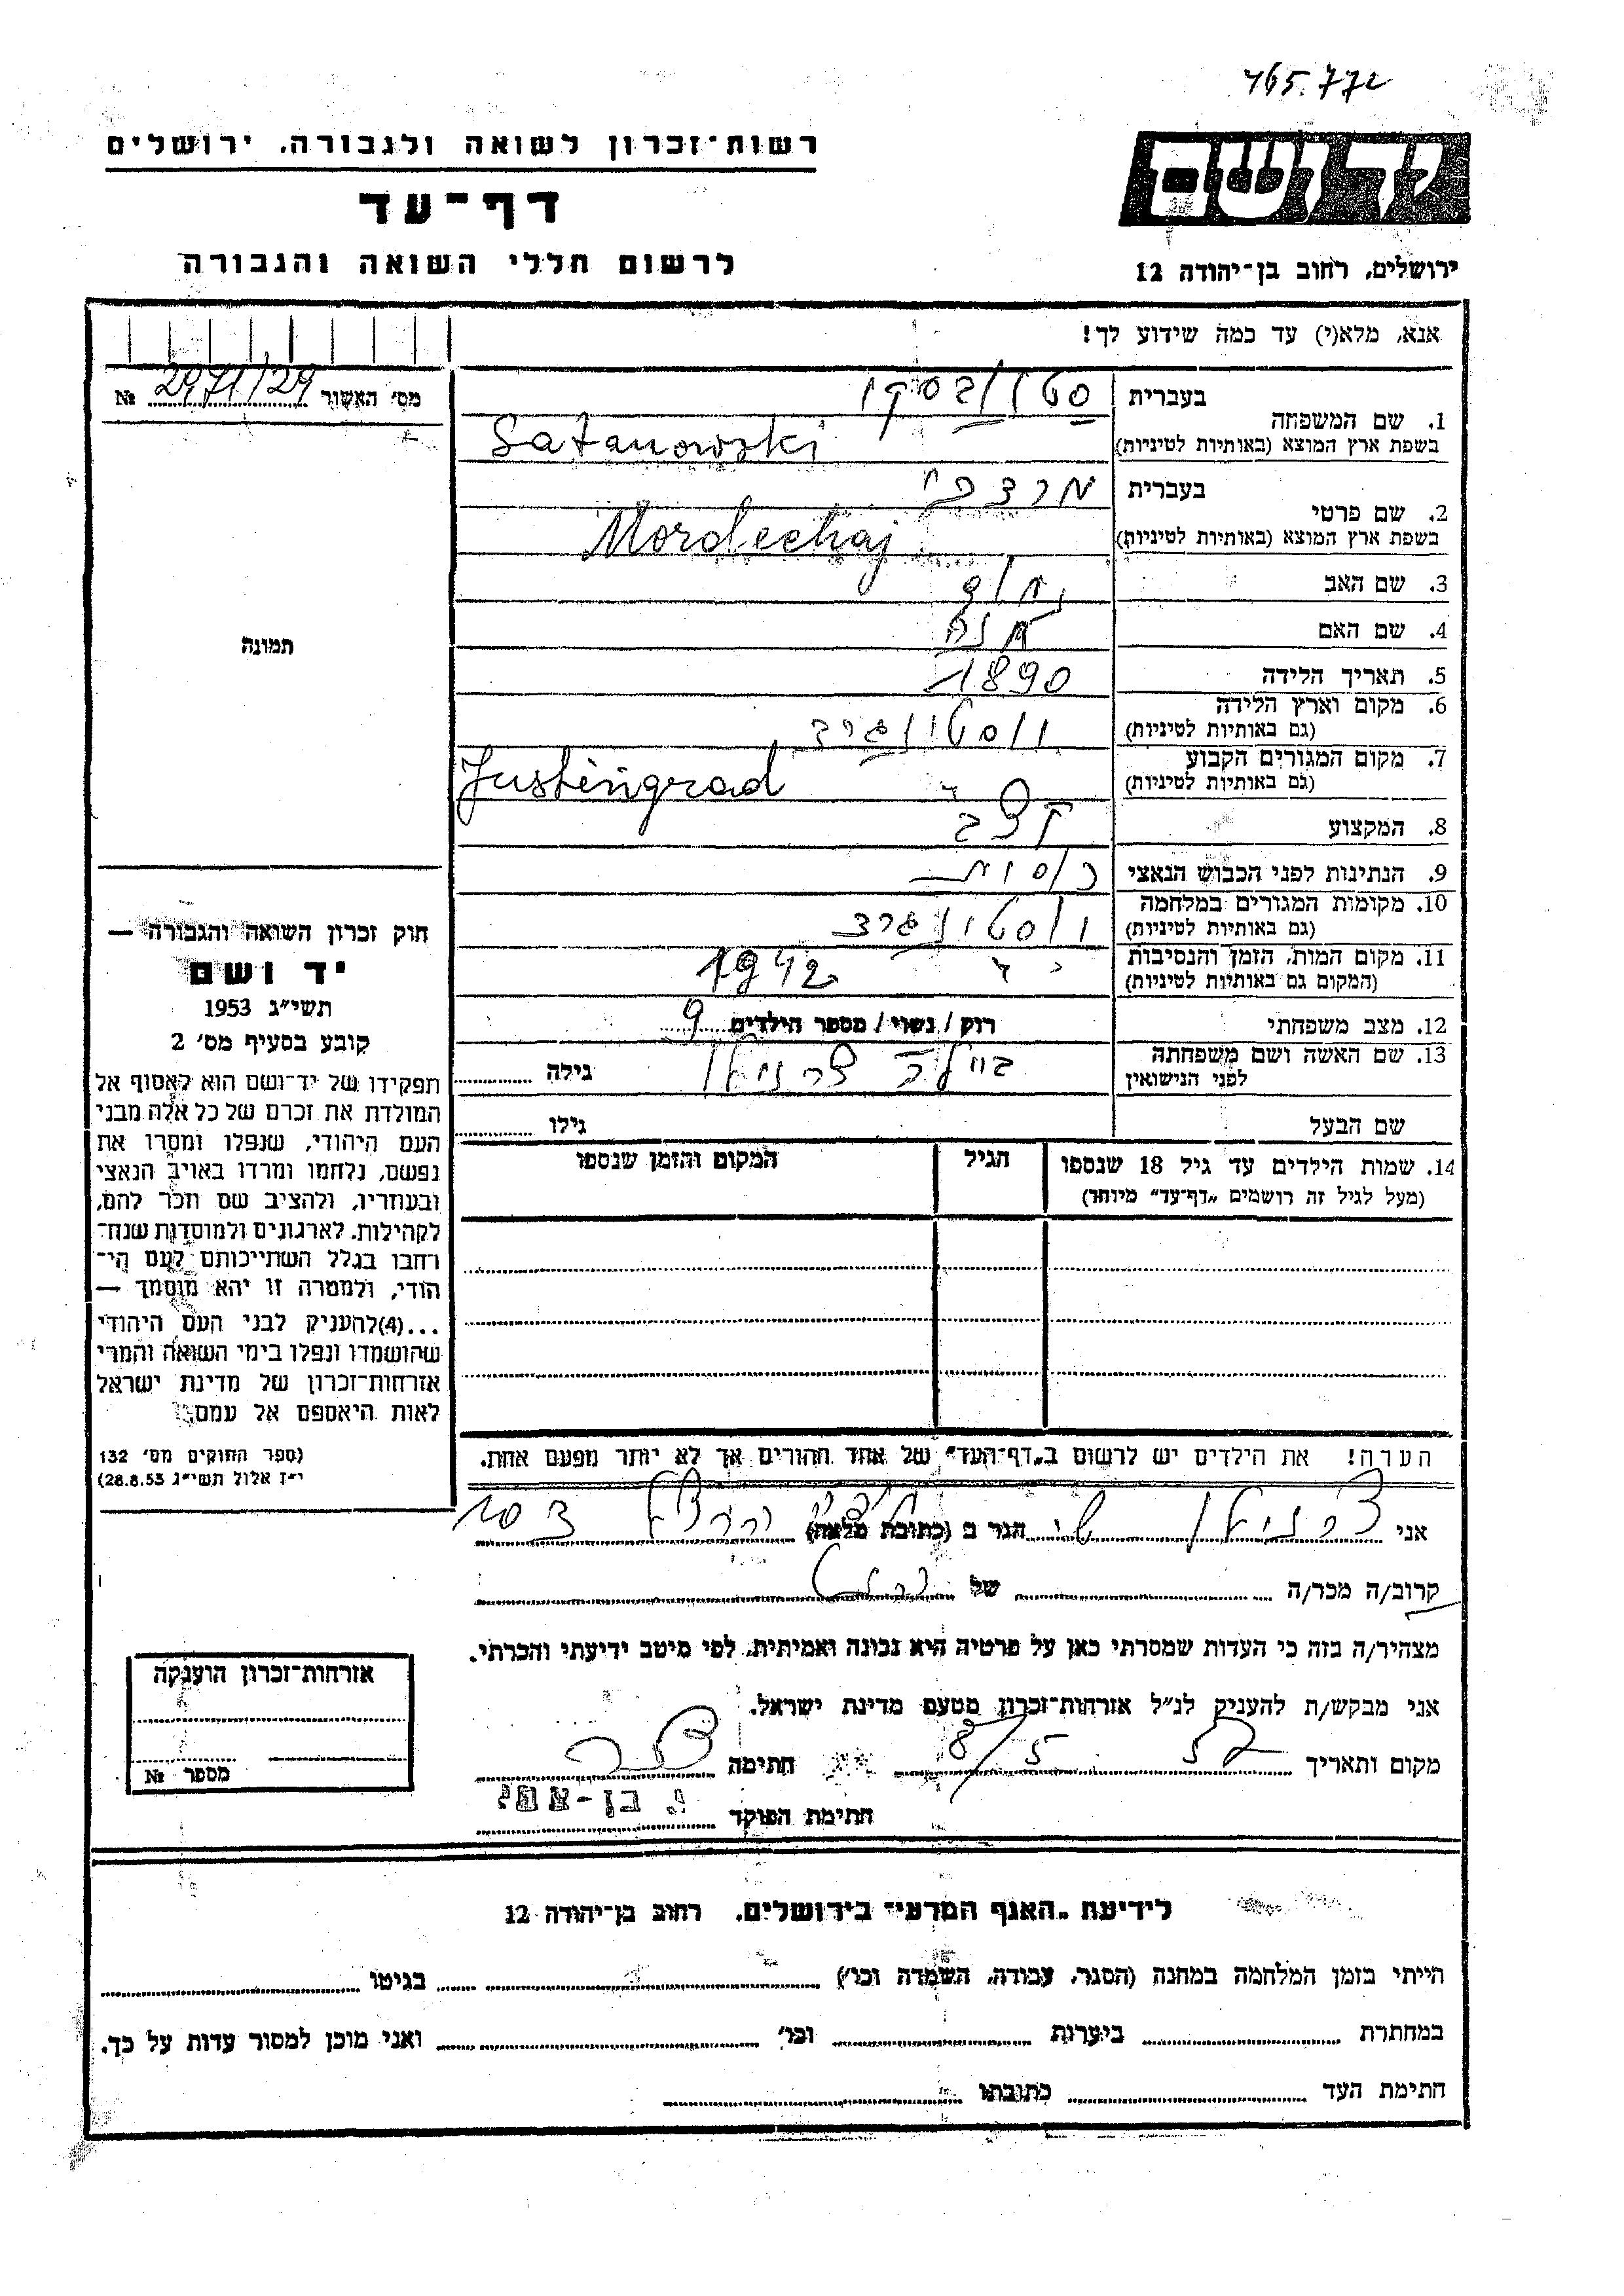 465.772
רשות־זכרון לשואה ולגבורה, ירושלים
דף־עד
לרשום חללי השואה והגבורה
ידושם
ירושלים, רחוב בן־יהודה 12
אנא, מלא(י) עד כמה שידוע לך!
מס׳ האשור 2971/29 №
1. שם המשפחה
בעברית
בשפת ארץ המוצא (באותיות לטיניות) Satanowski
2. שם פרטי
בעברית מרדכי
בשפת ארץ המוצא (באותיות לטיניות) Mordechaj
3. שם האב
4. שם האם חנה
5. תאריך הלידה 1890
6. מקום וארץ הלידה
(גם באותיות לטיניות) יוסטינגרד
7. מקום המגורים הקבוע
(גם באותיות לטיניות) Justingrad
8. המקצוע קצב
9. הנתינות לפני הכבוש הנאצי רוסית
10. מקומות המגורים במלחמה
(גם באותיות לטיניות) יוסטינגרד
11. מקום המות, הזמן והנסיבות
(המקום גם באותיות לטיניות) 1942
12. מצב משפחתי רוק / נשוי / מספר הילדים 9
13. שם האשה ושם משפחתה
לפני הנישואין גילה
שם הבעל גילו
14. שמות הילדים עד גיל 18 שנספו
(מעל לגיל זה רושמים „דף־עד״ מיוחד)
הגיל
המקום והזמן שנספו
הערה! את הילדים יש לרשום ב„דף־העד״ של אחד ההורים אך לא יותר מפעם אחת.
תמונה
חוק זכרון השואה והגבורה —
יד ושם
תשי״ג 1953
קובע בסעיף מס׳ 2
תפקידו של יד־ושם הוא לאסוף אל
המולדת את זכרם של כל אלה מבני
העם היהודי, שנפלו ומסרו את
נפשם, נלחמו ומרדו באויב הנאצי
ובעוזריו, ולהציב שם וזכר להם,
לקהילות, לארגונים ולמוסדות שנח־
רחבו בגלל השתייכותם לעם הי־
הודי, ולמטרה זו יהא מוסמך —
...(4)להעניק לבני העם היהודי
שהושמדו ונפלו בימי השואה והמרי
אזרחות־זכרון של מדינת ישראל
לאות היאספם אל עמם.
(ספר החוקים מס׳ 132
י״ז אלול תשי״ג 28.8.53)
אני הגר ב (כתובת מלאה)
קרוב/ה מכר/ה של
מצהיר/ה בזה כי העדות שמסרתי כאן על פרטיה היא נכונה ואמיתית, לפי מיטב ידיעתי והכרתי.
אני מבקש/ת להעניק לנ״ל אזרחות־זכרון מטעם מדינת ישראל.
מקום ותאריך 8/5 57 חתימה
חתימת הפוקד י. בן-עמי
אזרחות־זכרון הוענקה
מספר №
לידיעת „האגף המדעי״ בירושלים, רחוב בן־יהודה 12
הייתי בזמן המלחמה במחנה (הסגר, עבודה, השמדה וכו׳) בגיטו
במחתרת ביערות וכו׳ ואני מוכן למסור עדות על כך.
חתימת העד כתובתו